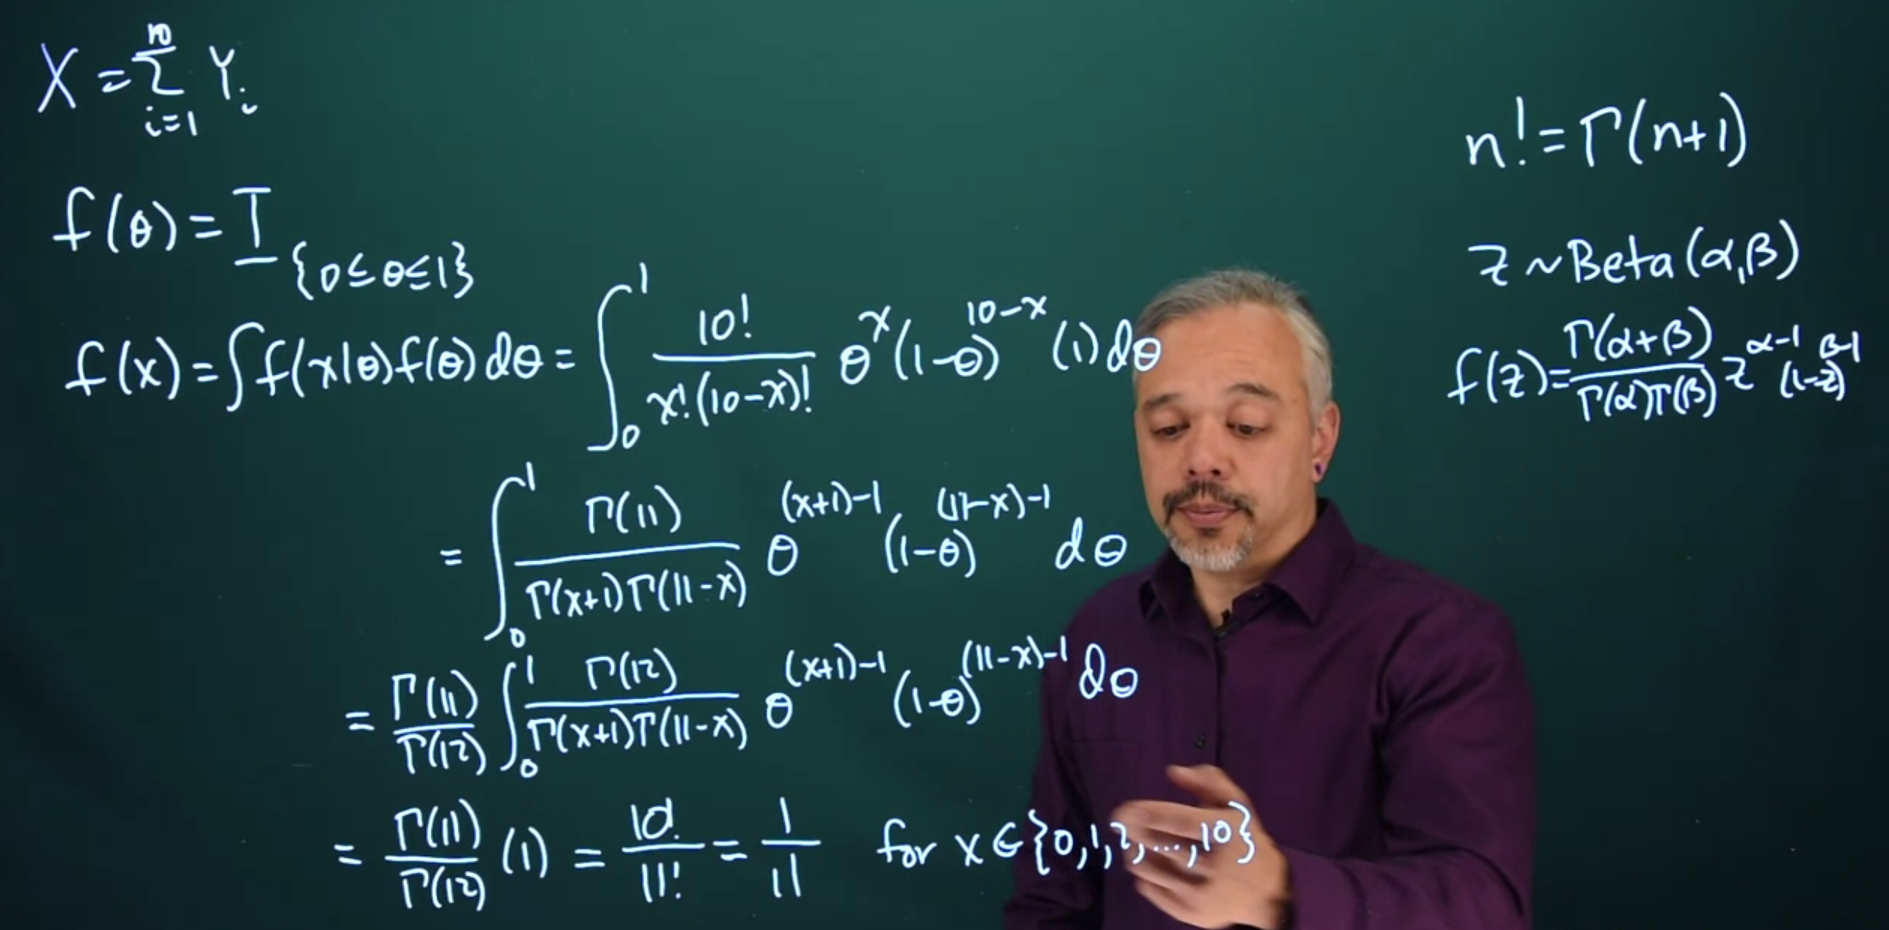 X = ∑_{i=1}^{10} Y_i
f(θ) = I_{{0≤θ≤1}}
f(x) = ∫ f(x|θ) f(θ) dθ = ∫_0^1 10!/(x!(10-x)!) θ^x (1-θ)^{10-x} (1) dθ
= ∫_0^1 Γ(11)/(Γ(x+1)Γ(11-x)) θ^{(x+1)-1} (1-θ)^{(11-x)-1} dθ
= Γ(11)/Γ(12) ∫_0^1 Γ(12)/(Γ(x+1)Γ(11-x)) θ^{(x+1)-1} (1-θ)^{(11-x)-1} dθ
= Γ(11)/Γ(12) (1) = 10!/11! = 1/11 for x ∈ {0,1,2,...,10}
n! = Γ(n+1)
z ~ Beta(α,β)
f(z) = Γ(α+β)/(Γ(α)Γ(β)) z^{α-1} (1-z)^{β-1}